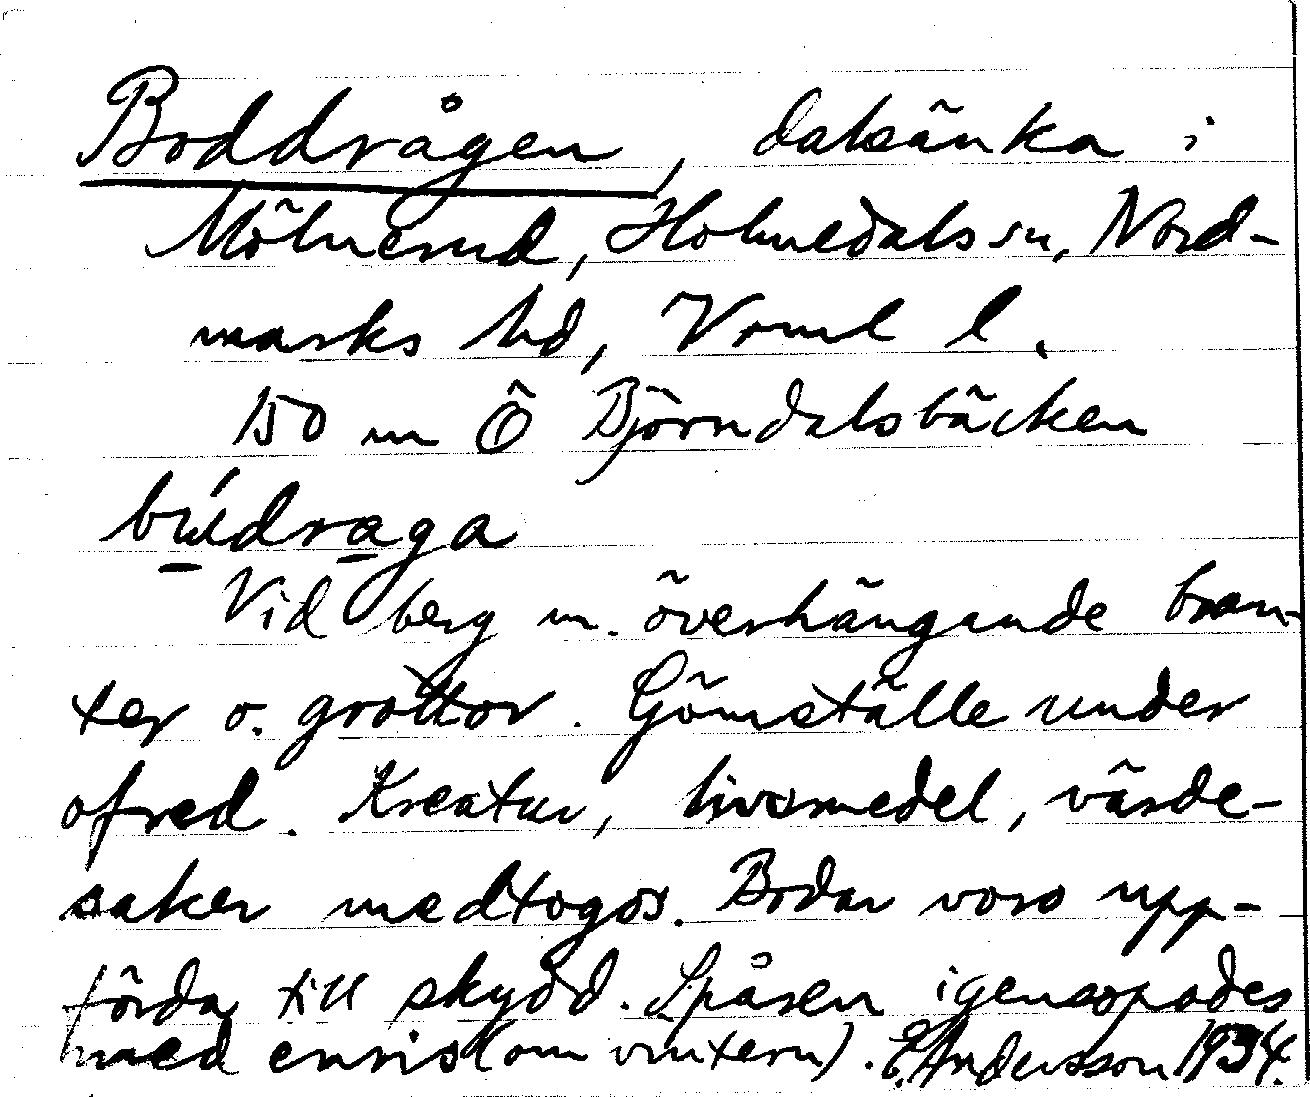 Boddrågen, dalsänka i
Mölnerud, Holmedals sn, Nord-
marks hd, Vrml l.
150 m Ö Björndalsbäcken
búdraga
Vid berg m. överhängande bran-
ter o. grottor. Gömställe under
ofred. Kreatur, livsmedel, värde-
saker medtogos. Bodar voro upp-
förda till skydd. Spåren igensopades
med enris (om vintern). E. Andersson 1934.